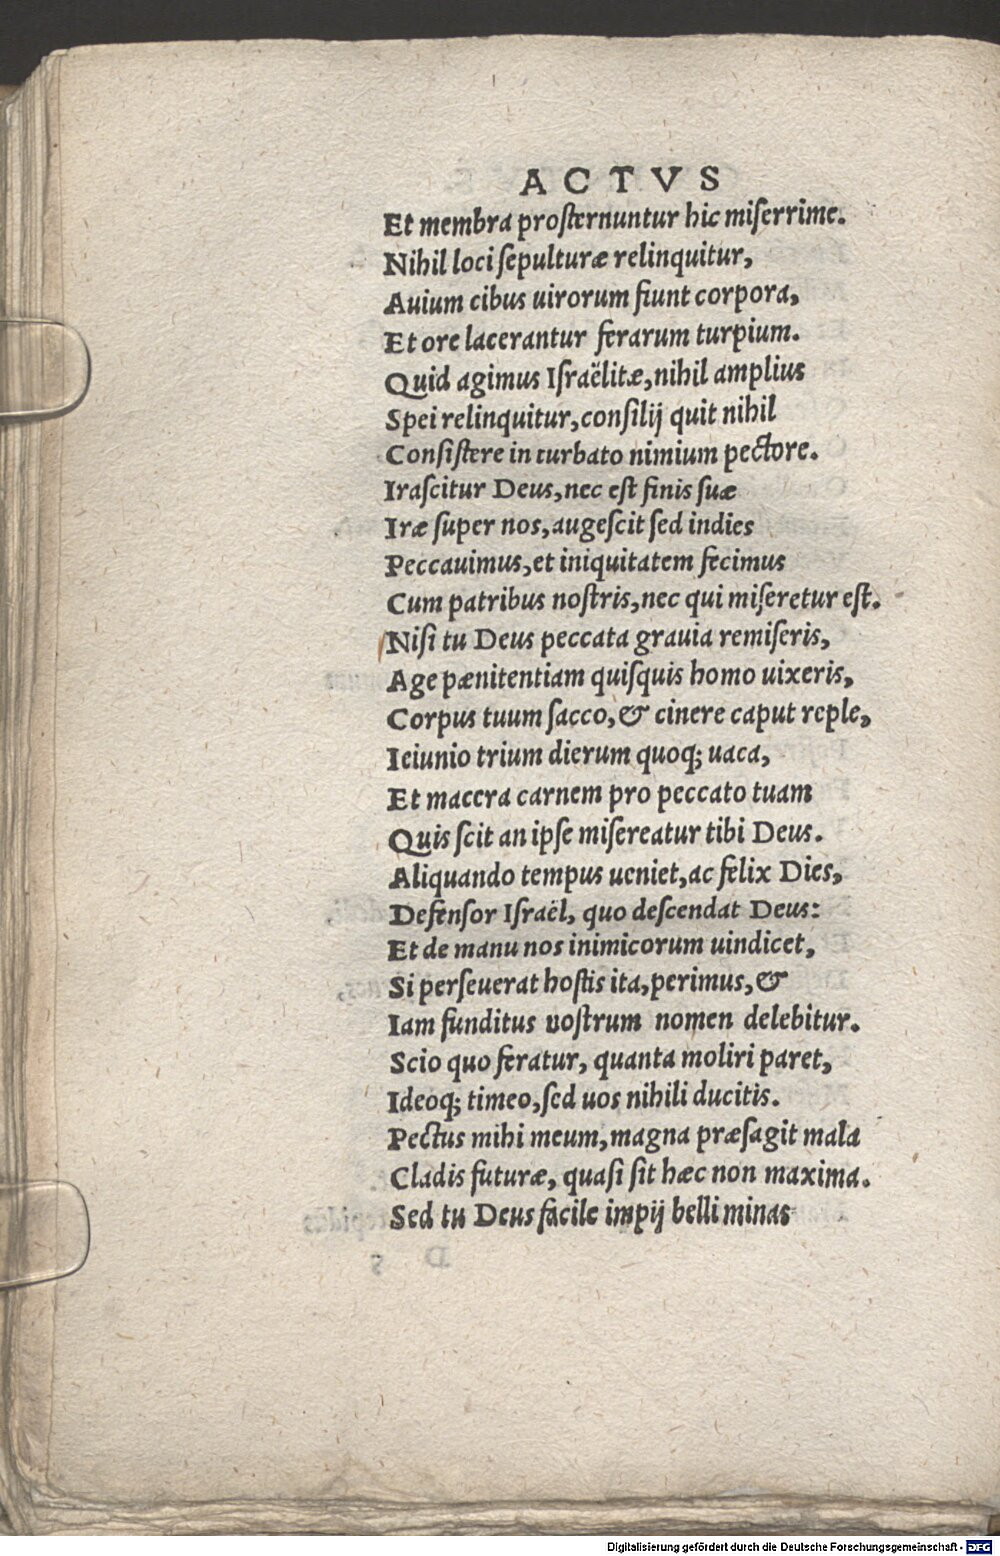 ACTVS
Et membra prosternuntur hic miserrime.
Nihil loci sepulturæ relinquitur,
Auium cibus uirorum fiunt corpora,
Et ore lacerantur ferarum turpium.
Quid agimus Israëlitæ, nihil amplius
Spei relinquitur, consilij quit nihil
Consistere in turbato nimium pectore.
Irascitur Deus, nec est finis suæ
Iræ super nos, augescit sed indies
Peccauimus, et iniquitatem fecimus
Cum patribus nostris, nec qui miseretur est.
Nisi tu Deus peccata grauia remiseris,
Age pænitentiam quisquis homo uixeris,
Corpus tuum sacco, & cinere caput reple,
Ieiunio trium dierum quoq; uaca,
Et macera carnem pro peccato tuam
Quis scit an ipse misereatur tibi Deus.
Aliquando tempus ueniet, ac felix Dies,
Defensor Israël, quo descendat Deus:
Et de manu nos inimicorum uindicet,
Si perseuerat hostis ita, perimus, &
Iam funditus uostrum nomen delebitur.
Scio quo feratur, quanta moliri paret,
Ideoq; timeo, sed uos nihili ducitis.
Pectus mihi meum, magna præsagit mala
Cladis futuræ, quasi sit hæc non maxima.
Sed tu Deus facile impij belli minas
Digitalisierung gefördert durch die Deutsche Forschungsgemeinschaft - DFG